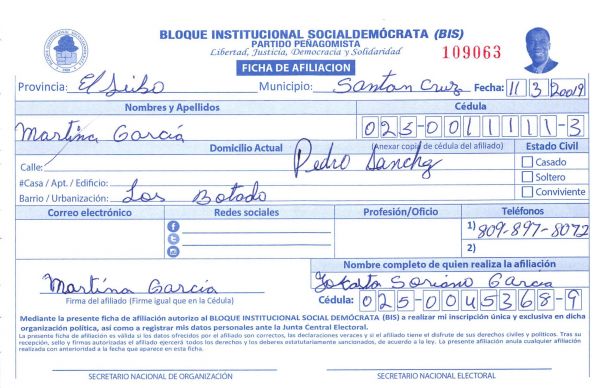 BLOQUE INSTITUCIONAL SOCIALDEMÓCRATA (BIS)
PARTIDO PEÑAGOMISTA
Libertad, Justicia, Democracia y Solidaridad
109063
FICHA DE AFILIACION
Provincia: El Seibo Municipio: Santan Cruz Fecha: 11 3 20019
Nombres y Apellidos Cédula
Martina García 025-0011111-3
Domicilio Actual (Anexar copia de cédula del afiliado) Estado Civil
Calle: Pedro Sanchez Casado
#Casa / Apt. / Edificio: Soltero
Barrio / Urbanización: Los Botado Conviviente
Correo electrónico Redes sociales Profesión/Oficio Teléfonos
1) 809-897-8072
2)
Nombre completo de quien realiza la afiliación
Martina García Soriano Garcia
Firma del afiliado (Firme igual que en la Cédula) Cédula: 025-0045368-9
Mediante la presente ficha de afiliación autorizo al BLOQUE INSTITUCIONAL SOCIAL DEMÓCRATA (BIS) a realizar mi inscripción única y exclusiva en dicha
organización política, así como a registrar mis datos personales ante la Junta Central Electoral.
La presente ficha de afiliación es válida si los datos ofrecidos por el afiliado son correctos, las declaraciones veraces y si el afiliado tiene el disfrute de sus derechos civiles y políticos. Tras su
recepción, sello y firmas autorizadas el afiliado ejercerá todos los derechos y los deberes estatutariamente sancionados, de acuerdo a la ley. La presente afiliación anula cualquier afiliación
realizada con anterioridad a la fecha que aparece en esta ficha.
SECRETARIO NACIONAL DE ORGANIZACIÓN SECRETARIO NACIONAL ELECTORAL